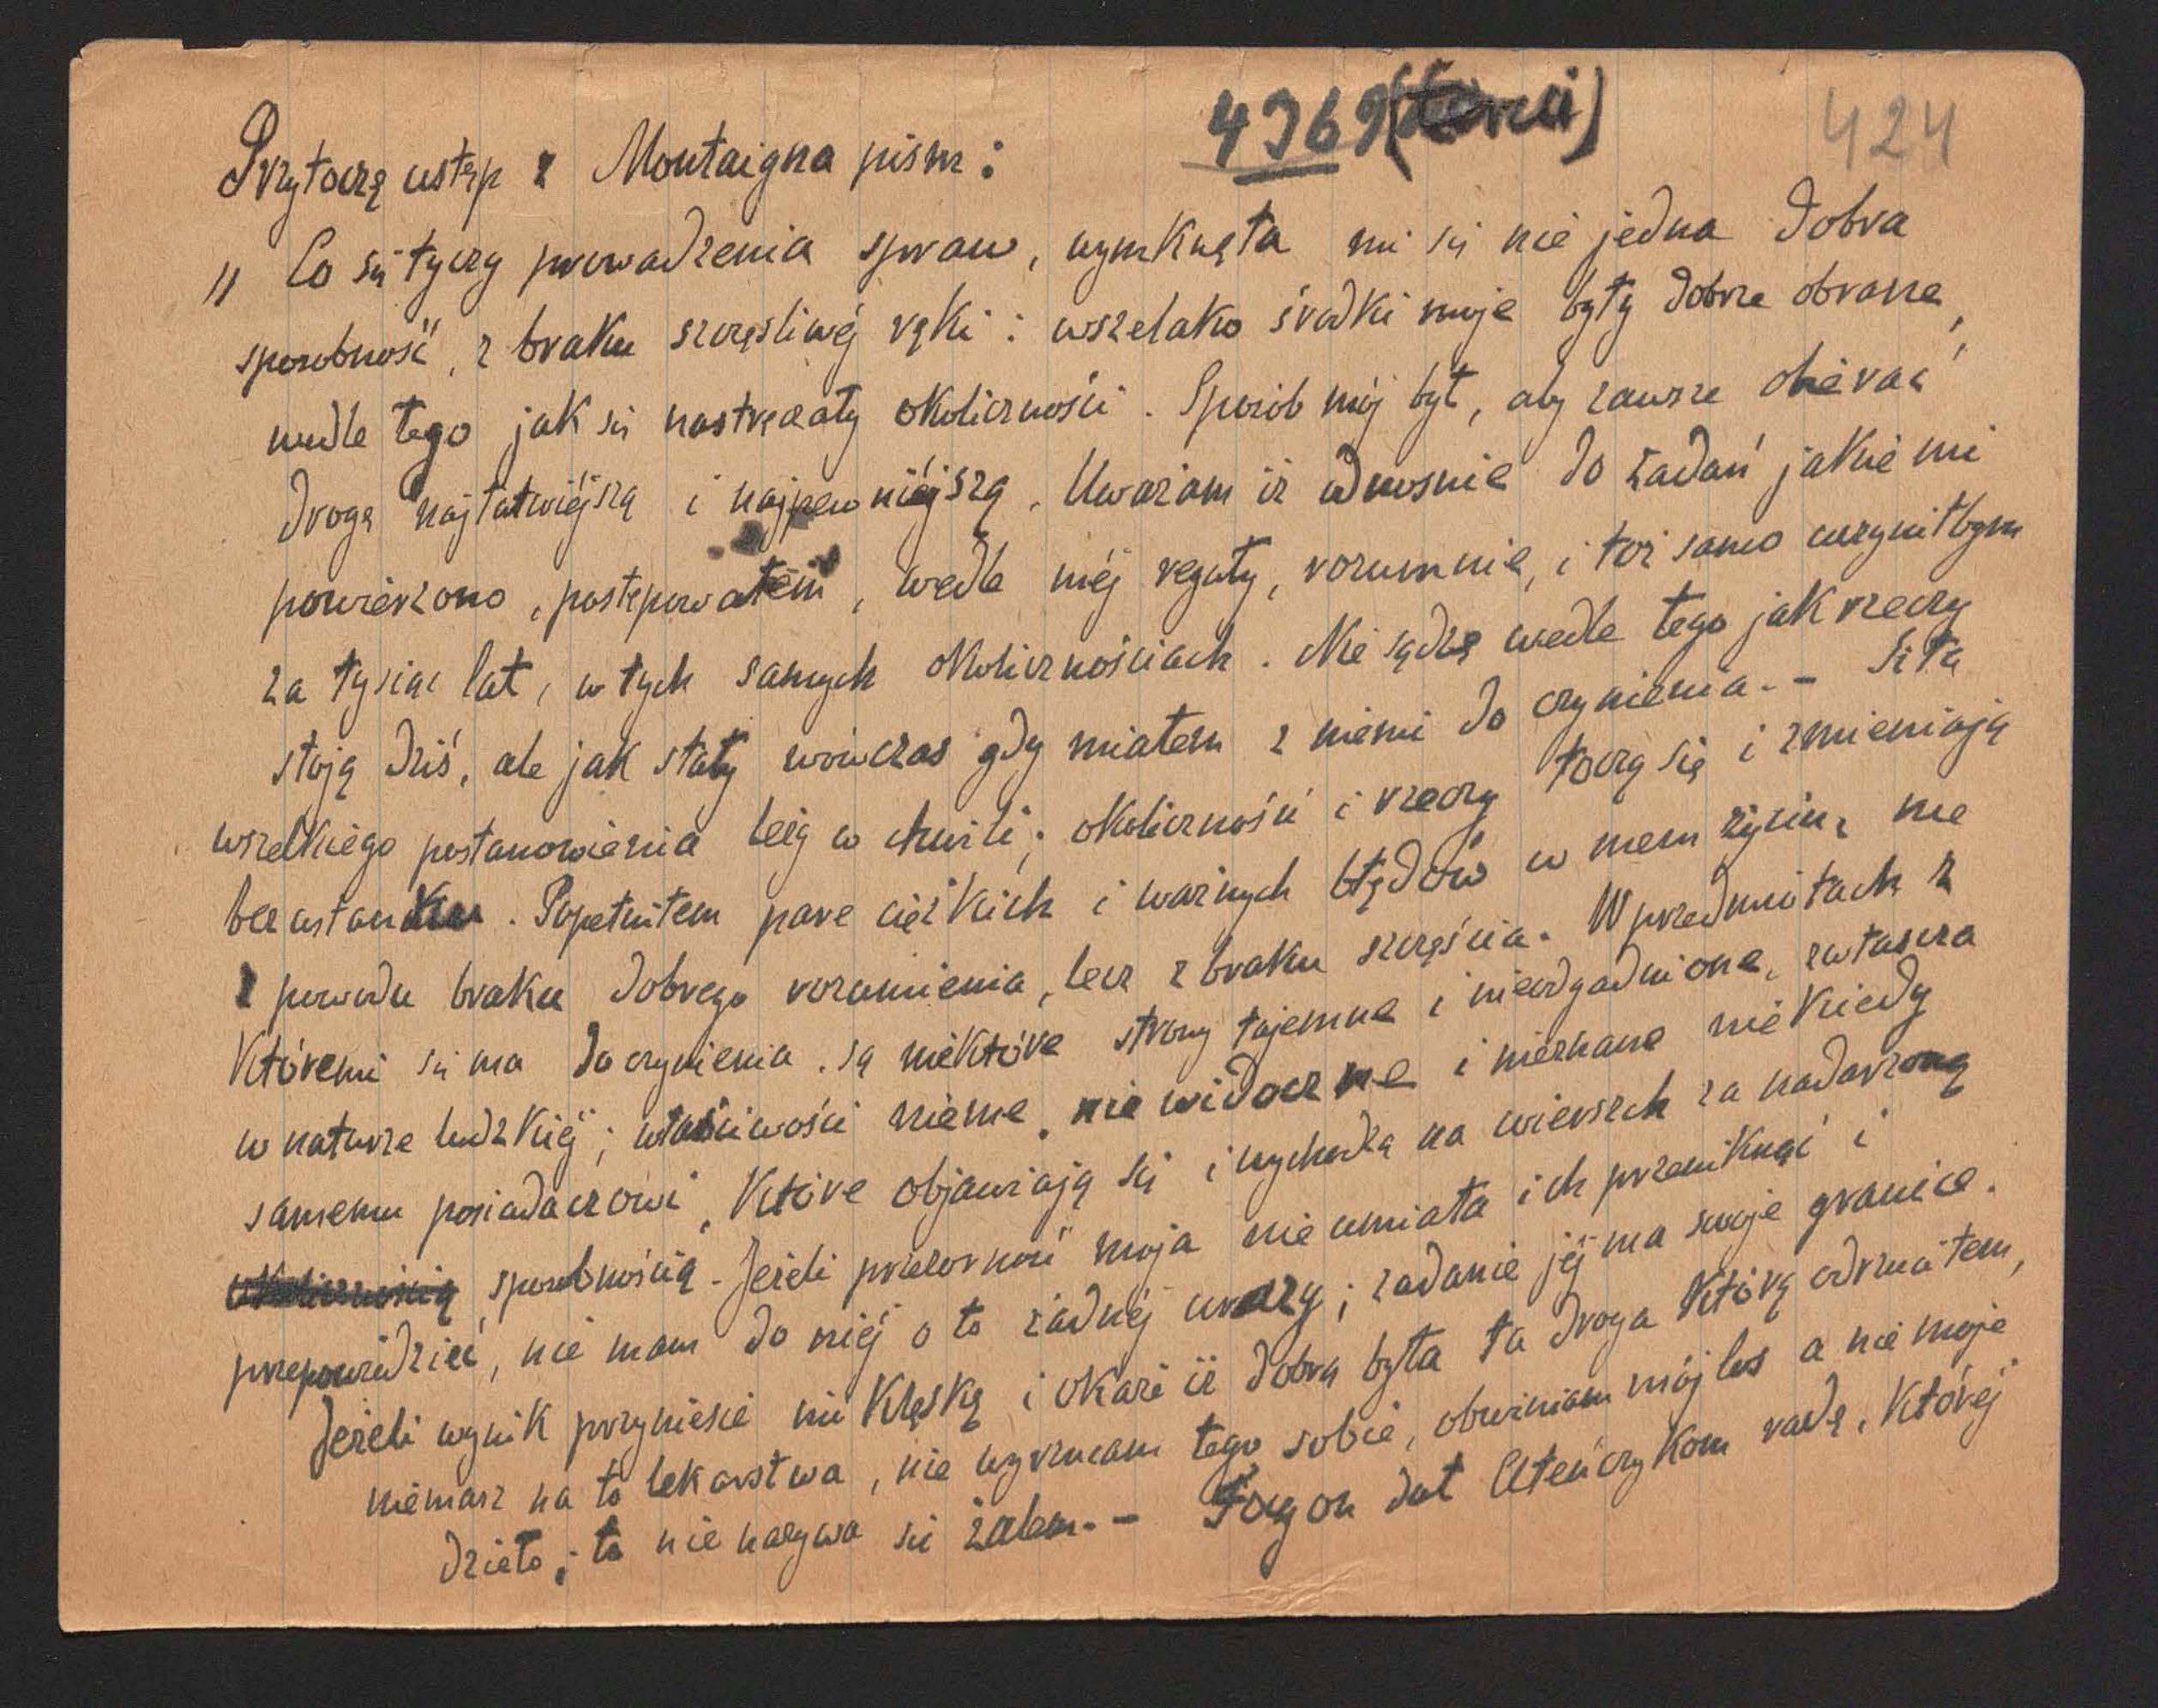 4369
424
Przytoczę ustęp z Montaigna pism:
„Co się tyczy prowadzenia spraw, wymknęła mi się nie jedna dobra
sposobność, z braku szczęśliwéj ręki: wszelako środki moje były dobrze obrane,
wedle tego jak się nastręczały okoliczności. Sposób mój był, aby zawsze obierać
drogę najłatwiéjszą i najpewniéjszą. Uważam iż odnosnie do zadań jakie mi
powierzono, postępowałem, wedle méj reguły, rozumnie, i toż samo uczyniłbym
za tysiąc lat, w tych samych okolicznościach. Nie sądzę wedle tego jak rzeczy
stoją dziś, ale jak stały wówczas gdy miałem z niemi do czynienia. - Siła
wszelkiego postanowienia leży w chwili; okoliczności i rzeczy toczą się i zmieniają
bez ustanku. Popełniłem parę ciężkich i ważnych błędów w mem życiu, nie
z powodu braku dobrego rozumienia, lecz z braku szczęścia. W przedmiotach z
któremi się ma do czynienia, są niektóre strony tajemne i nieodgadnione, zwłaszcza
w naturze ludzkiéj; właściwości nieme, nie widoczne i nieznane niekiedy
samemu posiadaczowi, które objawiają się i wychodzą na wierzch za nadarzoną
sposobnością. Jeżeli przezorność moja nie umiała ich przeniknąć i
przepowiedzieć, nie mam do niéj o to żadnéj urazy; zadanie jéj ma swoje granice.
Jeżeli wynik przyniesie mi klęskę i okaże iż dobrą była ta droga którą odrzuciłem,
niemasz na to lekarstwa, nie wyrzucam tego sobie, obwiniam mój los a nie moje
dzieło; to nie nazywa się żalem. - Focyon dał Ateńczykom radę, któréj